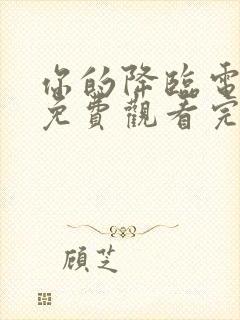 你的降臨電
免費觀看完
顧芝